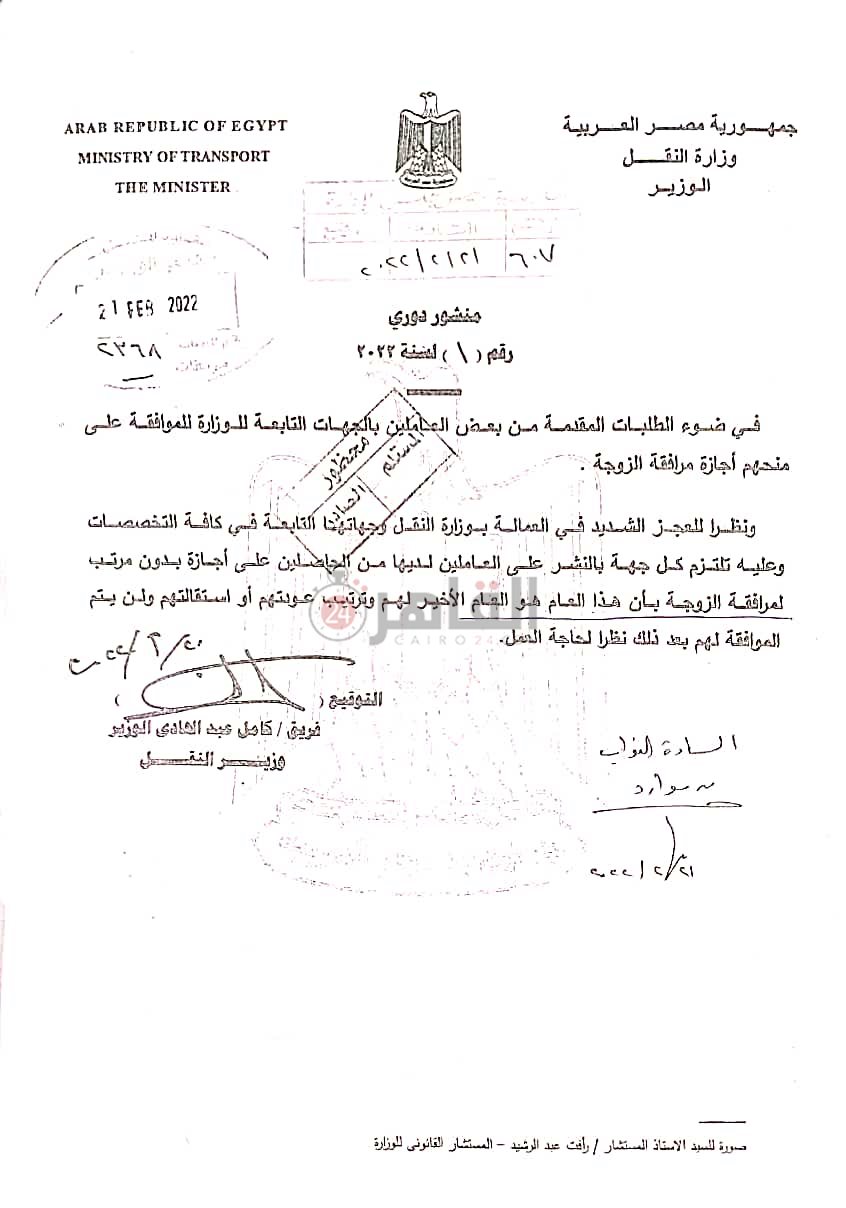 ARAB REPUBLIC OF EGYPT
MINISTRY OF TRANSPORT
THE MINISTER
جمهورية مصر العربية
وزارة النقل
الوزير
٦٠٧
٢٠٢٢/٢/٢١
21 FEB 2022
٢٣٦٨
منشور دوري
رقم (١) لسنة ٢٠٢٢
في ضوء الطلبات المقدمة من بعض العاملين بالجهات التابعة للوزارة للموافقة على
منحهم أجازة مرافقة الزوجة .
ونظرا للعجز الشديد في العمالة بوزارة النقل وجهاتها التابعة في كافة التخصصات
وعليه تلتزم كل جهة بالنشر على العاملين لديها من الحاصلين على أجازة بدون مرتب
لمرافقة الزوجة بأن هذا العام هو العام الأخير لهم وترتيب عودتهم أو استقالتهم ولن يتم
الموافقة لهم بعد ذلك نظرا لحاجة العمل.
محظور
المستلم
القاهرة 24
CAIRO 24
٢٠٢٢/٢/٢٠
التوقيع ( )
فريق / كامل عبد الهادى الوزير
وزير النقل
السادة النواب
٢٠٢٢/٢/٢١
صورة للسيد الاستاذ المستشار / رأفت عبد الرشيد – المستشار القانونى للوزارة